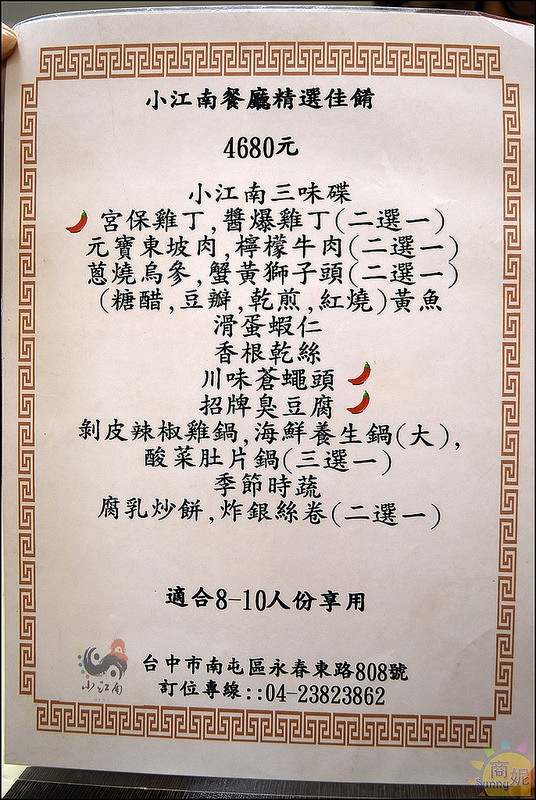 小江南餐廳精選佳餚
4680元
小江南三味碟
宮保雞丁,醬爆雞丁(二選一)
元寶東坡肉,檸檬牛肉(二選一)
蔥燒烏參,蟹黃獅子頭(二選一)
(糖醋,豆瓣,乾煎,紅燒)黃魚
滑蛋蝦仁
香根乾絲
川味蒼蠅頭
招牌臭豆腐
剝皮辣椒雞鍋,海鮮養生鍋(大),
酸菜肚片鍋(三選一)
季節時蔬
腐乳炒餅,炸銀絲卷(二選一)
適合8-10人份享用
小江南
台中市南屯區永春東路808號
訂位專線::04-23823862
商妮
Sunny